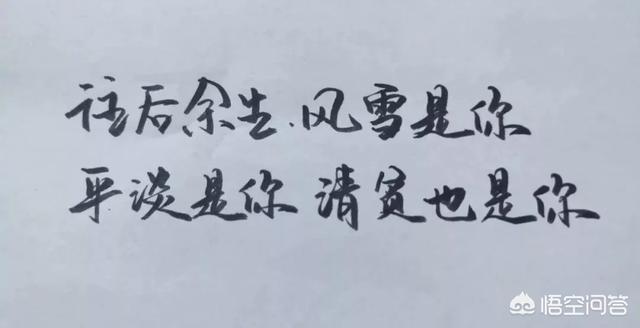 往后余生、风雪是你
平淡是你 清贫也是你
悟空问答